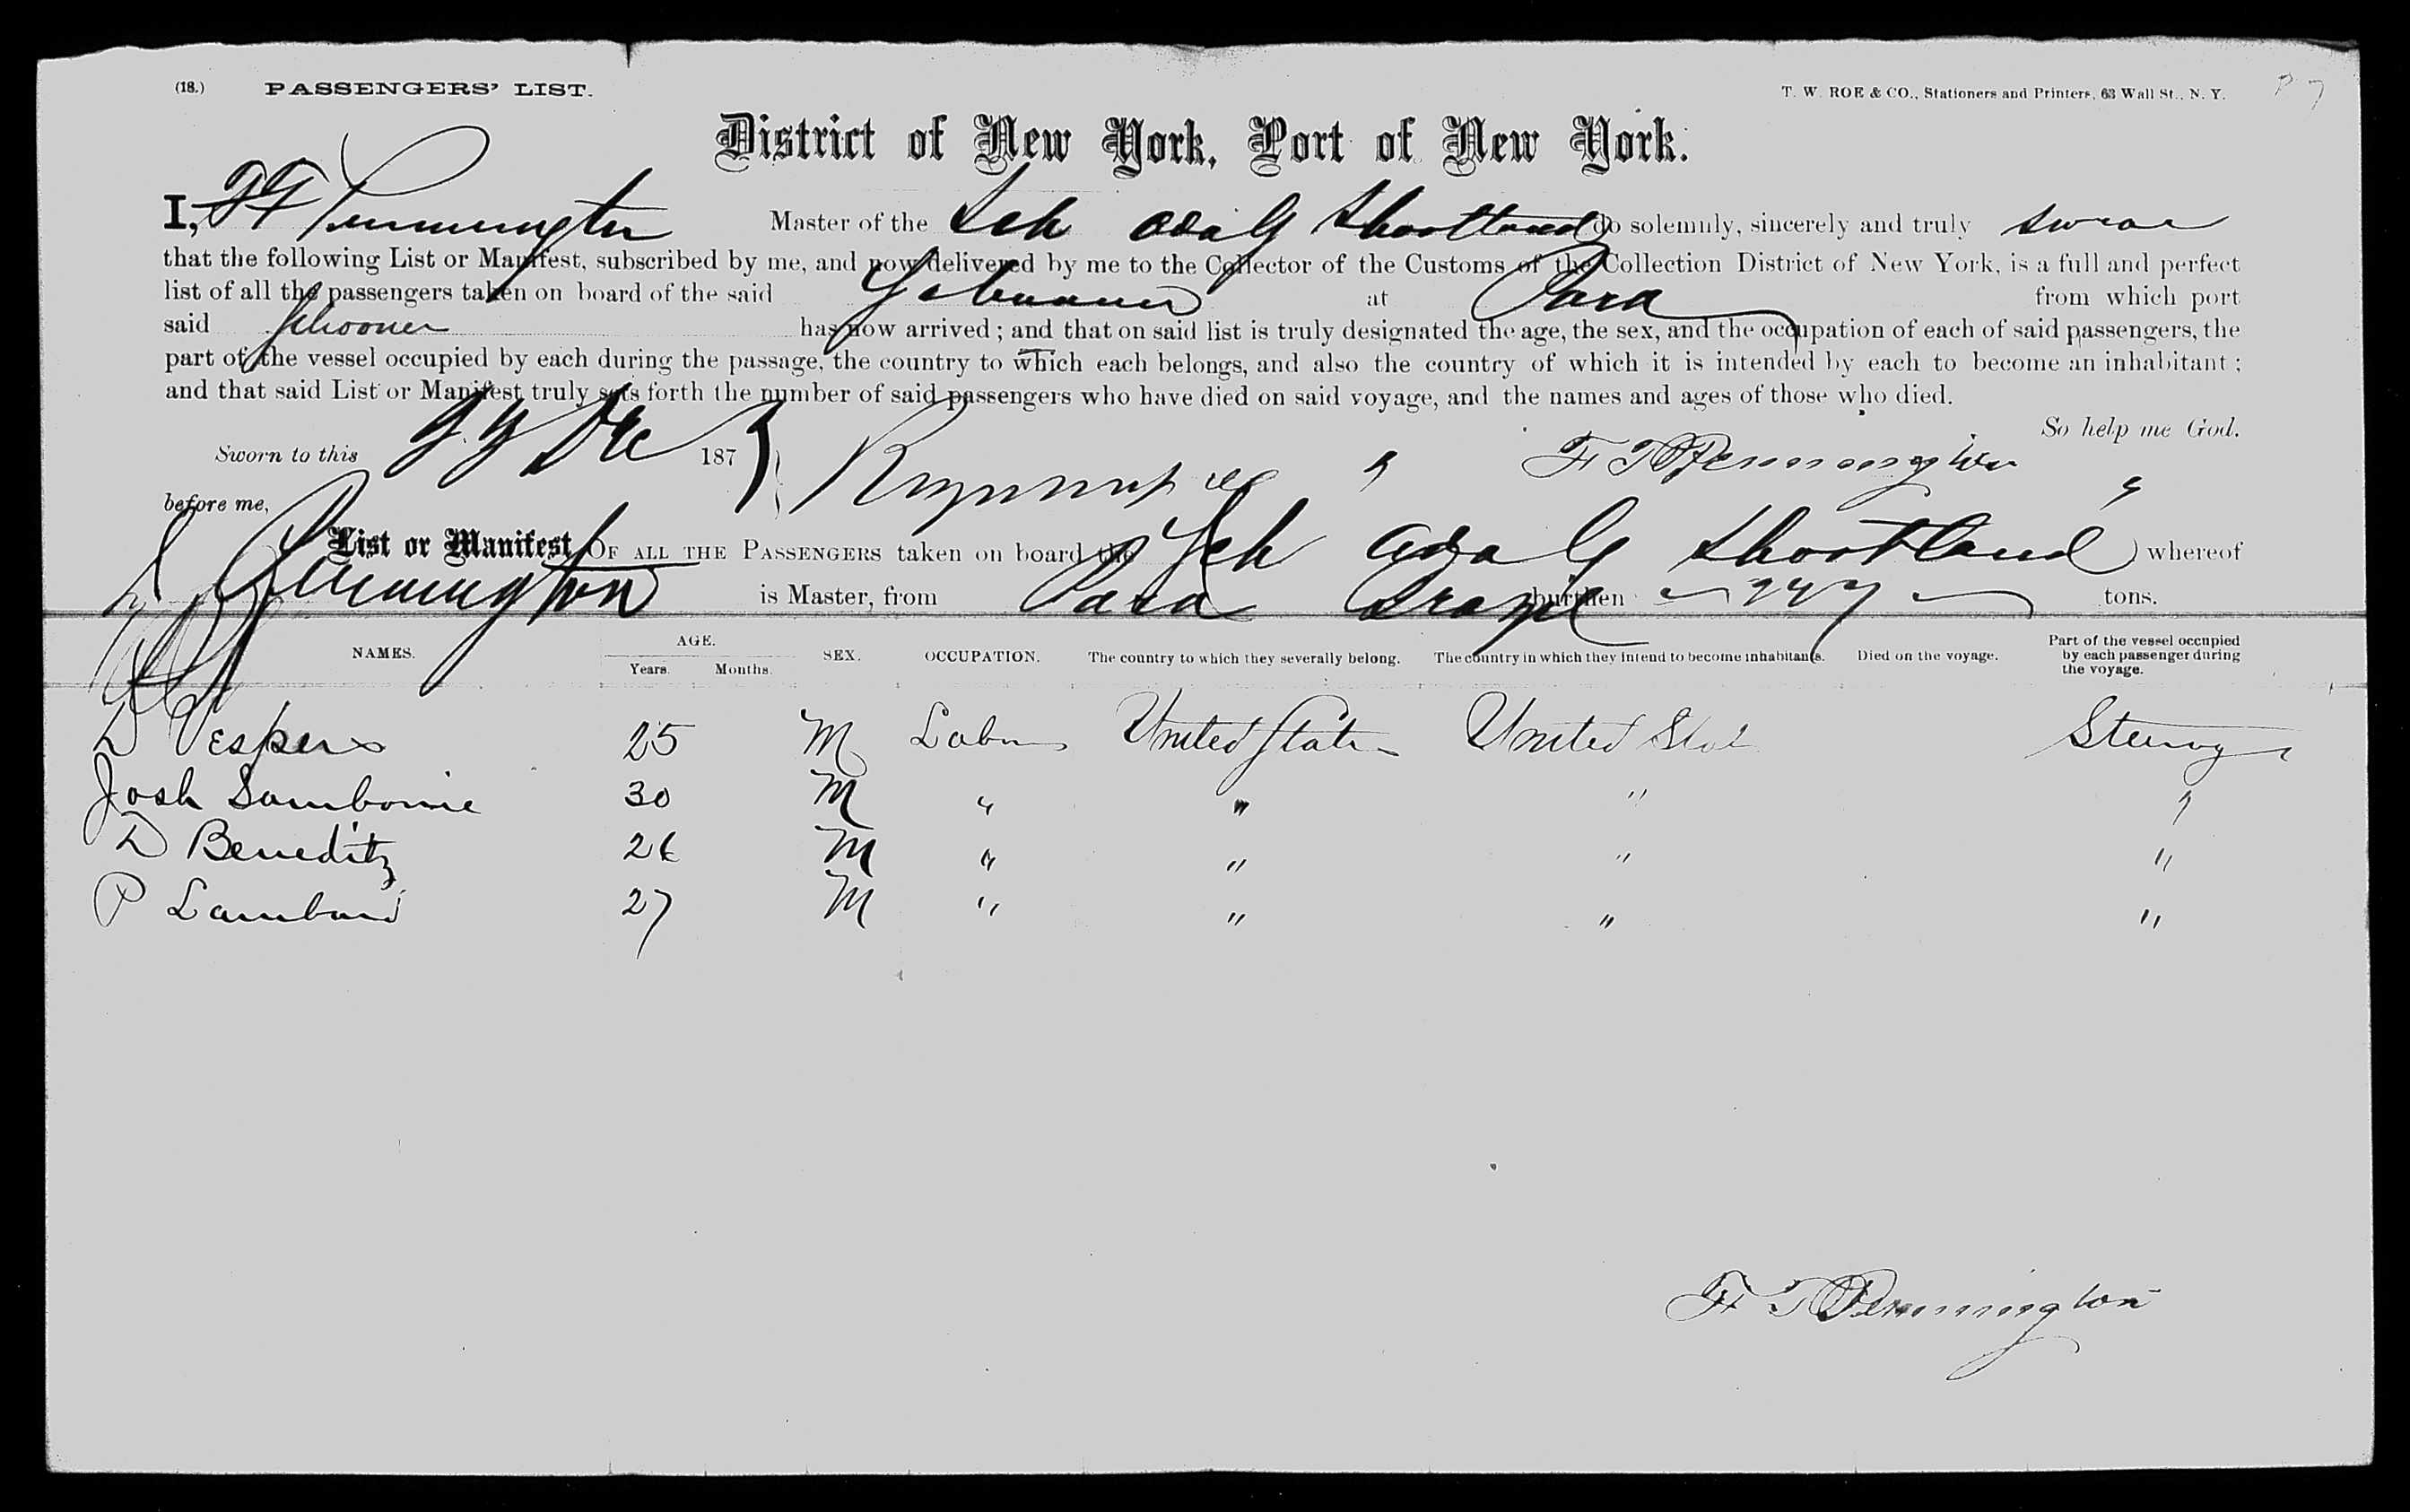 (18.) PASSENGERS' LIST. T. W. ROE & CO., Stationers and Printers, 63 Wall St., N. Y.
District of New York, Port of New York.
I, F T Pennington Master of the Sch Ada G Shortland do solemnly, sincerely and truly swear
that the following List or Manifest, subscribed by me, and now delivered by me to the Collector of the Customs of the Collection District of New York, is a full and perfect
list of all the passengers taken on board of the said Schooner at Para from which port
said Schooner has now arrived; and that on said list is truly designated the age, the sex, and the occupation of each of said passengers, the
part of the vessel occupied by each during the passage, the country to which each belongs, and also the country of which it is intended by each to become an inhabitant;
and that said List or Manifest truly sets forth the number of said passengers who have died on said voyage, and the names and ages of those who died.
So help me God.
Sworn to this Dec 187 F T Pennington
before me,
List or Manifest OF ALL THE PASSENGERS taken on board the Sch Ada G Shortland whereof
Pennington is Master, from Para Brazil burthen 247 tons.
NAMES. AGE. Years. Months. SEX. OCCUPATION. The country to which they severally belong. The country in which they intend to become inhabitants. Died on the voyage. Part of the vessel occupied by each passenger during the voyage.
D Vespers 25 M Labor United States United Stat Steerage
Josh Sambornie 30 M " " " "
D Beneditz 26 M " " " "
P Lambard 27 M " " " "
F T Pennington